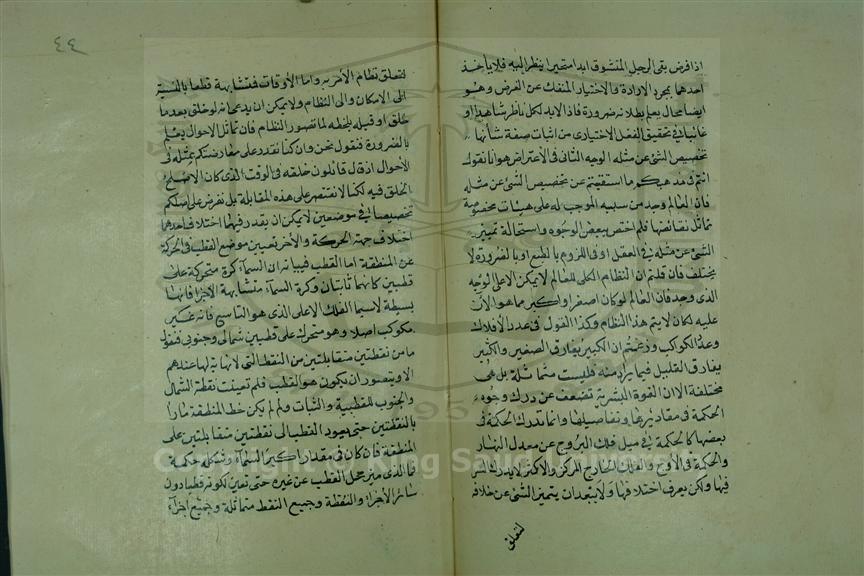 اذا فرض بقى الرجل المتشوق ابدا متحيرا ينظر اليه فلا يأخذ
احدهما بمجرد الارادة والاختيار المنفك عن الغرض وهو
ايضا محال يعلم بطلانه ضرورة فاذا لابد لكل ناظر شاهدا او
غائبا في تحقيق الفعل الاختيارى من اثبات صفة شأنها
تخصيص الشئ عن مثله الوجه الثانى فى الاعتراض هو انا نقول
انتم فى مذهبكم ما استغنيتم عن تخصيص الشئ عن مثله
فان العالم وجد من سببه الموجب له على هيئات مخصوصة
تماثل نقائضها فلم اختص ببعض الوجوه واستحالة تمييز
الشئ عن مثله في العقل او فى اللزوم بالطبع او بالضرورة لا
يختلف فان قلتم ان النظام الكلى للعالم لا يمكن الا على الوجه
الذى وجد فان العالم لو كان اصغر او اكبر مما هو الآن
عليه لكان لا يتم هذا النظام وكذا القول فى عدد الافلاك
وعدد الكواكب وزعمتم ان الكبير يفارق الصغير والكثير
يفارق القليل فيما يراد منه فليست متماثلة بل هى
مختلفة الا ان القوة البشرية تضعف عن درك وجوه
الحكمة فى مقاديرها وتفاصيلها وانما تدرك الحكمة فى
بعضها كالحكمة في ميل فلك البروج عن معدل النهار
والحكمة فى الاوج والفلك الخارج المركز والاكثر لا يدرك السر
فيها ولكن يعرف اختلافها ولا بعد ان يتميز الشئ عن خلافه
لتعلق
٤٤
لتعلق نظام الأمر به واما الأوقات فمتشابهة قطعا بالنسبة
الى الامكان والى النظام ولا يمكن ان يدعى انه لو خلق بعد ما
خلق او قبله بلحظه لما تصور النظام فان تماثل الاحوال يعلم
بالضرورة فنقول نحن وان كنا نقدر على معارضتكم بمثله فى
الأحوال اذ قال قائلون خلقه فى الوقت الذى كان الاصلح
الخلق فيه لكنا لا نقتصر على هذه المقابلة بل نفرض على اصلكم
تخصيصا في موضعين لا يمكن ان يقدر فيهما اختلاف احدهما
اختلاف جهة الحركة والأخر تعيين موضع القطب فى الحركة
عن المنطقة اما القطب فبيانه ان السمآء كرة متحركة على
قطبين كانهما ثابتان وكرة السمآء متشابهة الاجزا فانها
بسيطة لاسيما الفلك الاعلى الذى هو التاسع فانه غير
مكوكب اصلا وهو متحرك على قطبين شمالى وجنوبى فنقول
ما من نقطتين متقابلتين من النقط التى لا نهاية لها عندهم
الا ويتصور ان يكون هو القطب فلم تعينت نقطة الشمال
والجنوب للقطبية والثبات ولم لم يكن خط المنطقة مارا
بالنقطتين حتى يعود القطب الى نقطتين متقابلتين على
المنطقة فان كان فى مقدار كبر السمآء وشكله حكمة
فما الذى ميز محل القطب عن غيره حتى تعين لكونه قطبا دون
سائر الأجزآء والنقطة وجميع النقط متماثلة وجميع اجزآء
Copyright © King Saud University
1957